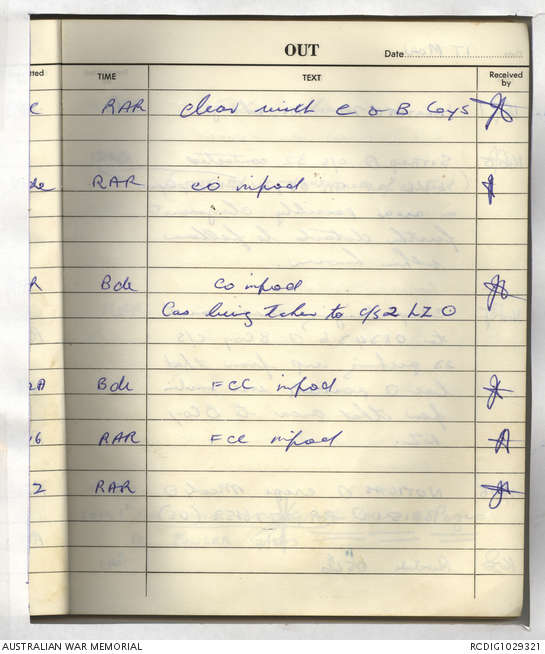 OUT
Date
TIME
TEXT
Received by
RAR clear with C & B Coys
RAR CO infod
R Bde CO infod
Cas being taken to c/s 2 LZ
2A Bde FCC infod
6 RAR FCC infod
2 RAR
AUSTRALIAN WAR MEMORIAL
RCDIG1029321